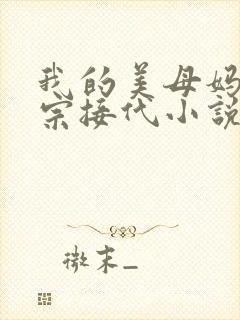 我的美母妈
宗接代小说
微末_